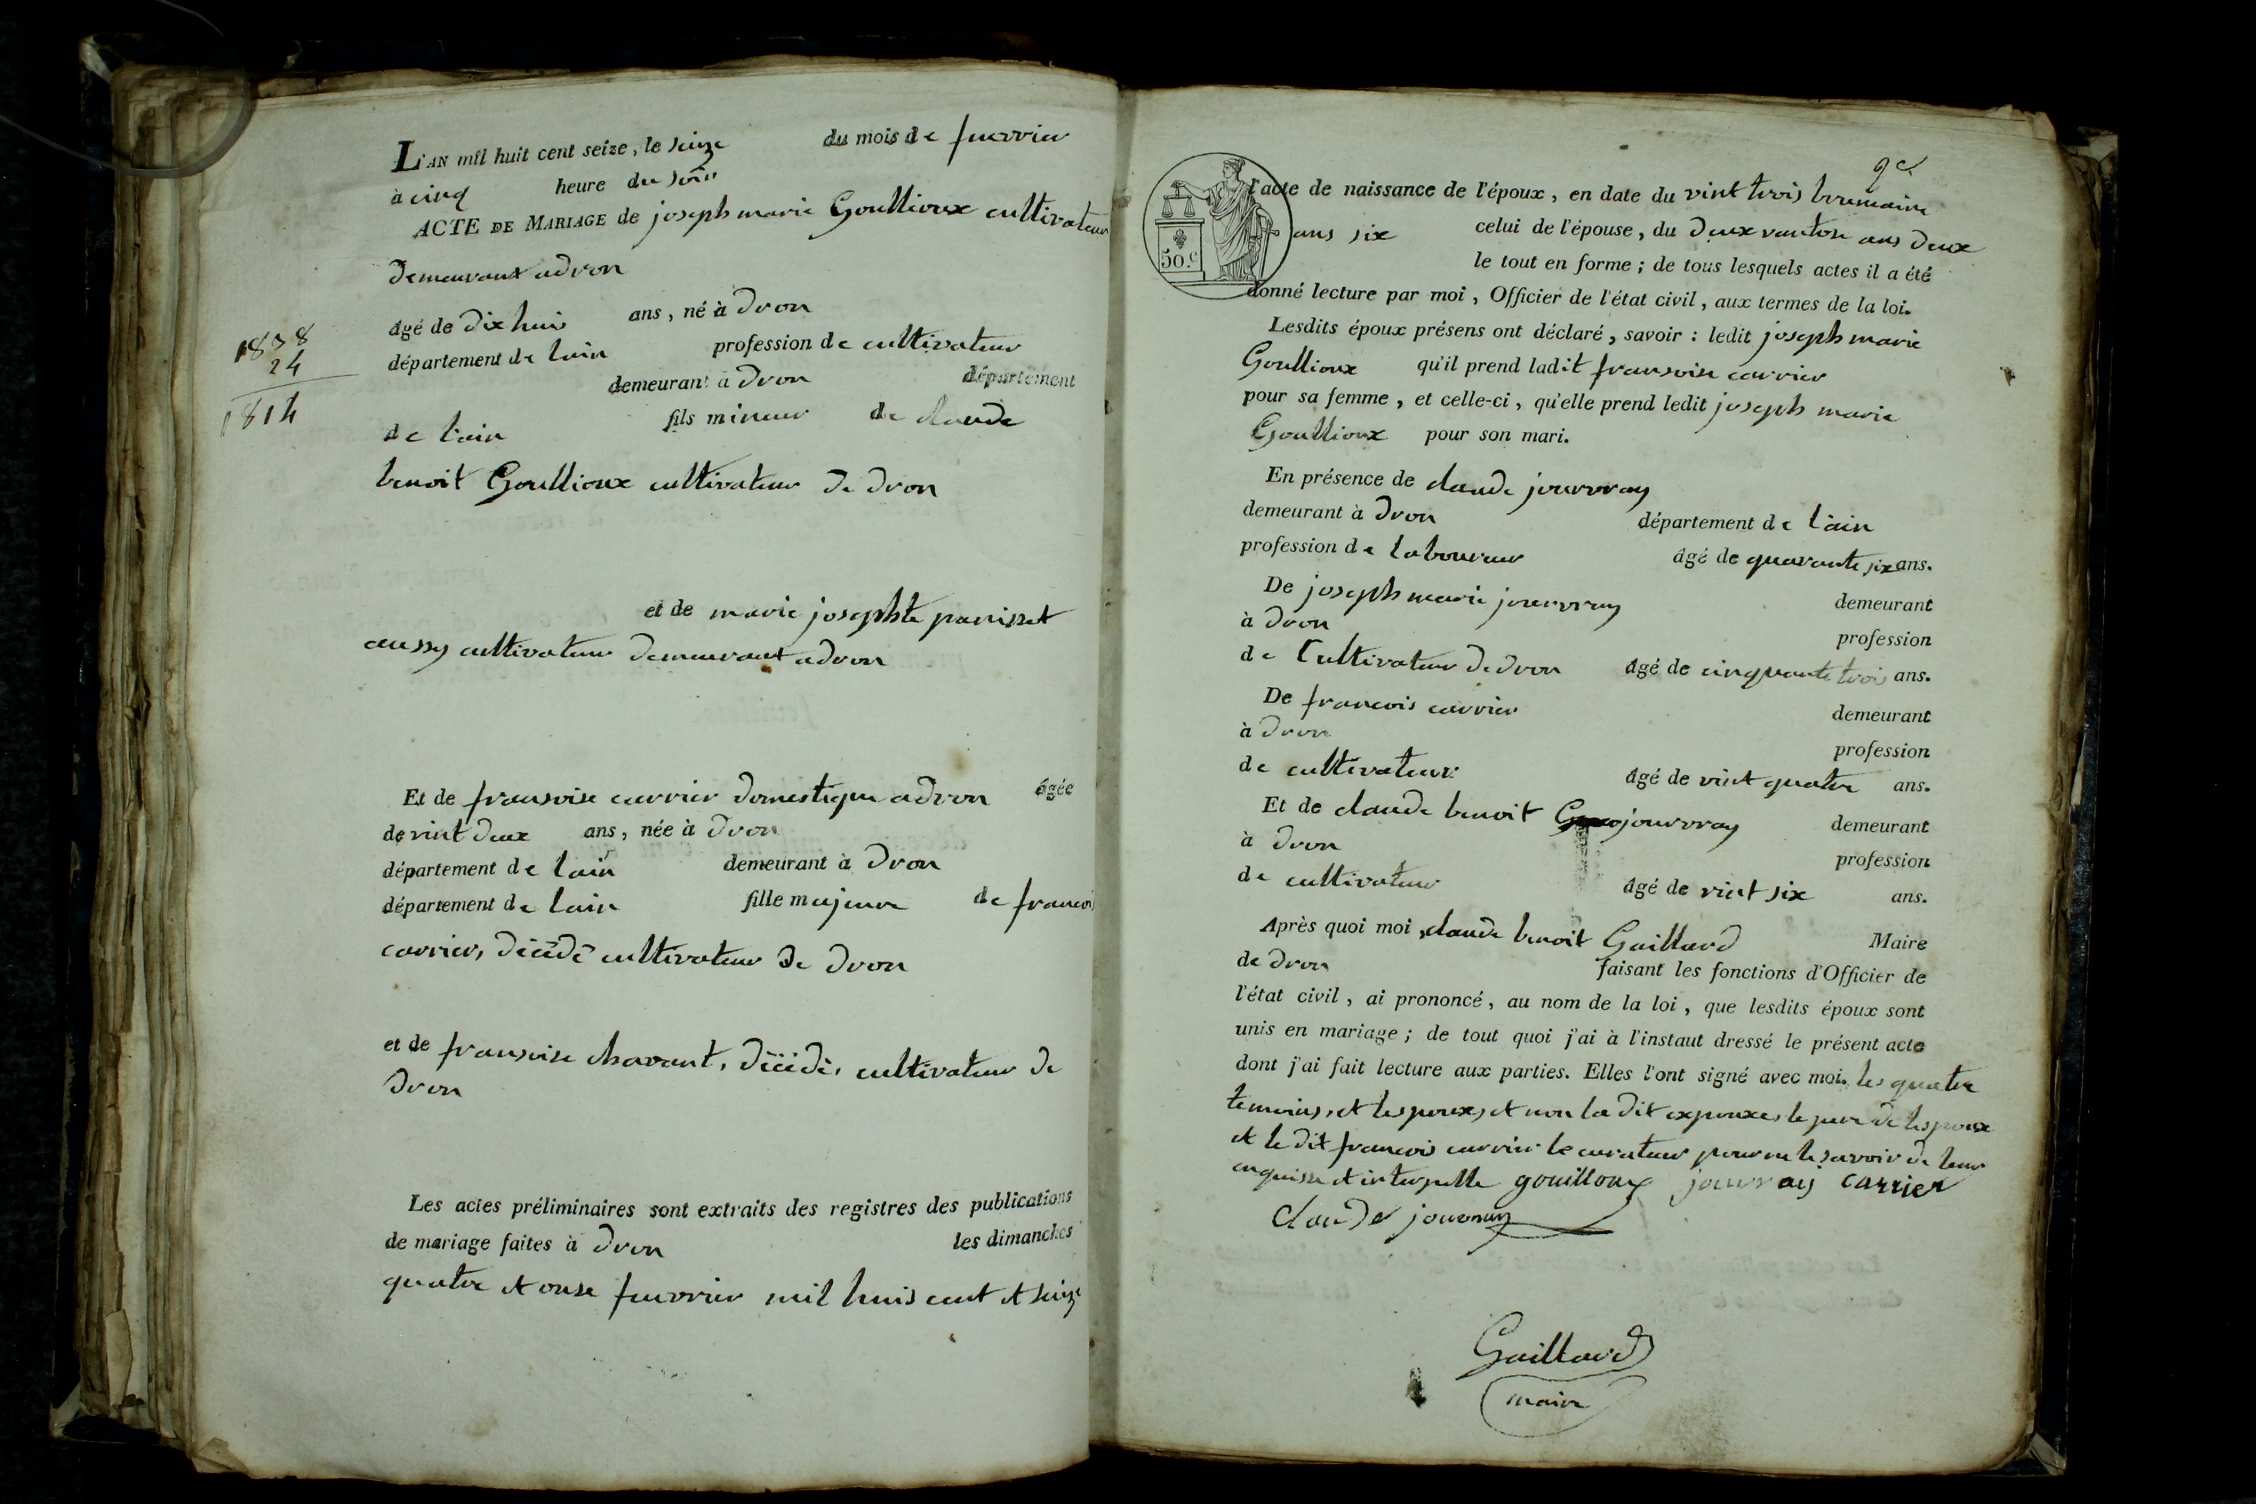 L'AN mil huit cent seize, le seize du mois de fuerrier
à cinq heure du soir
ACTE DE MARIAGE de joseph marie Goullioux cultivateur
demeurant a dron
âgé de dix huis ans, né à dron
département de lain profession de cultivateur
demeurant à dron département
de l'ain fils mineur de claude
benoit Goullioux cultivateur de dron
et de marie josephte panisset
aussy cultivateur demeurant a dron
1838
24
1814
Et de fransoise carrier domestique a dron âgée
de vint deux ans, née à dron
département de lain demeurant à dron
département de lain fille majeure de francois
carrier, décédé cultivateur de dron
et de fransoise chavant, décédé, cultivateur de
dron
Les actes préliminaires sont extraits des registres des publications
de mariage faites à dron les dimanches
quatre et onse fuerrier mil huis cent et seize
50.c
l'acte de naissance de l'époux, en date du vint trois brumaire
ans six celui de l'épouse, du deux vantose ans deux
le tout en forme; de tous lesquels actes il a été
donné lecture par moi, Officier de l'état civil, aux termes de la loi.
Lesdits époux présens ont déclaré, savoir: ledit joseph marie
Goullioux qu'il prend ladit fransoise carrier
pour sa femme, et celle-ci, qu'elle prend ledit joseph marie
Goullioux pour son mari.
En présence de claude jourvray
demeurant à dron département de l'ain
profession de laboureur âgé de quarante six ans.
De joseph marie jourvray demeurant
à dron profession
de Cultivateur de dron âgé de cinquante trois ans.
De francois carrier demeurant
à dron profession
de cultivateur âgé de vint quatre ans.
Et de claude benoit jourvray demeurant
à dron profession
de cultivateur âgé de vint six ans.
Après quoi moi, claude benoit Gaillard Maire
de dron faisant les fonctions d'Officier de
l'état civil, ai prononcé, au nom de la loi, que lesdits époux sont
unis en mariage; de tout quoi j'ai à l'instaut dressé le présent acte
dont j'ai fait lecture aux parties. Elles l'ont signé avec moi. les quatre
temoins, et lespoux, et non la dit expouxe, le pere de lespoux
et le dit francois carrier le curateur pour ne le savoir de leur
enquisse et interpelle gouilloux jouvray carrier
claude jouvray
Gaillard
maire